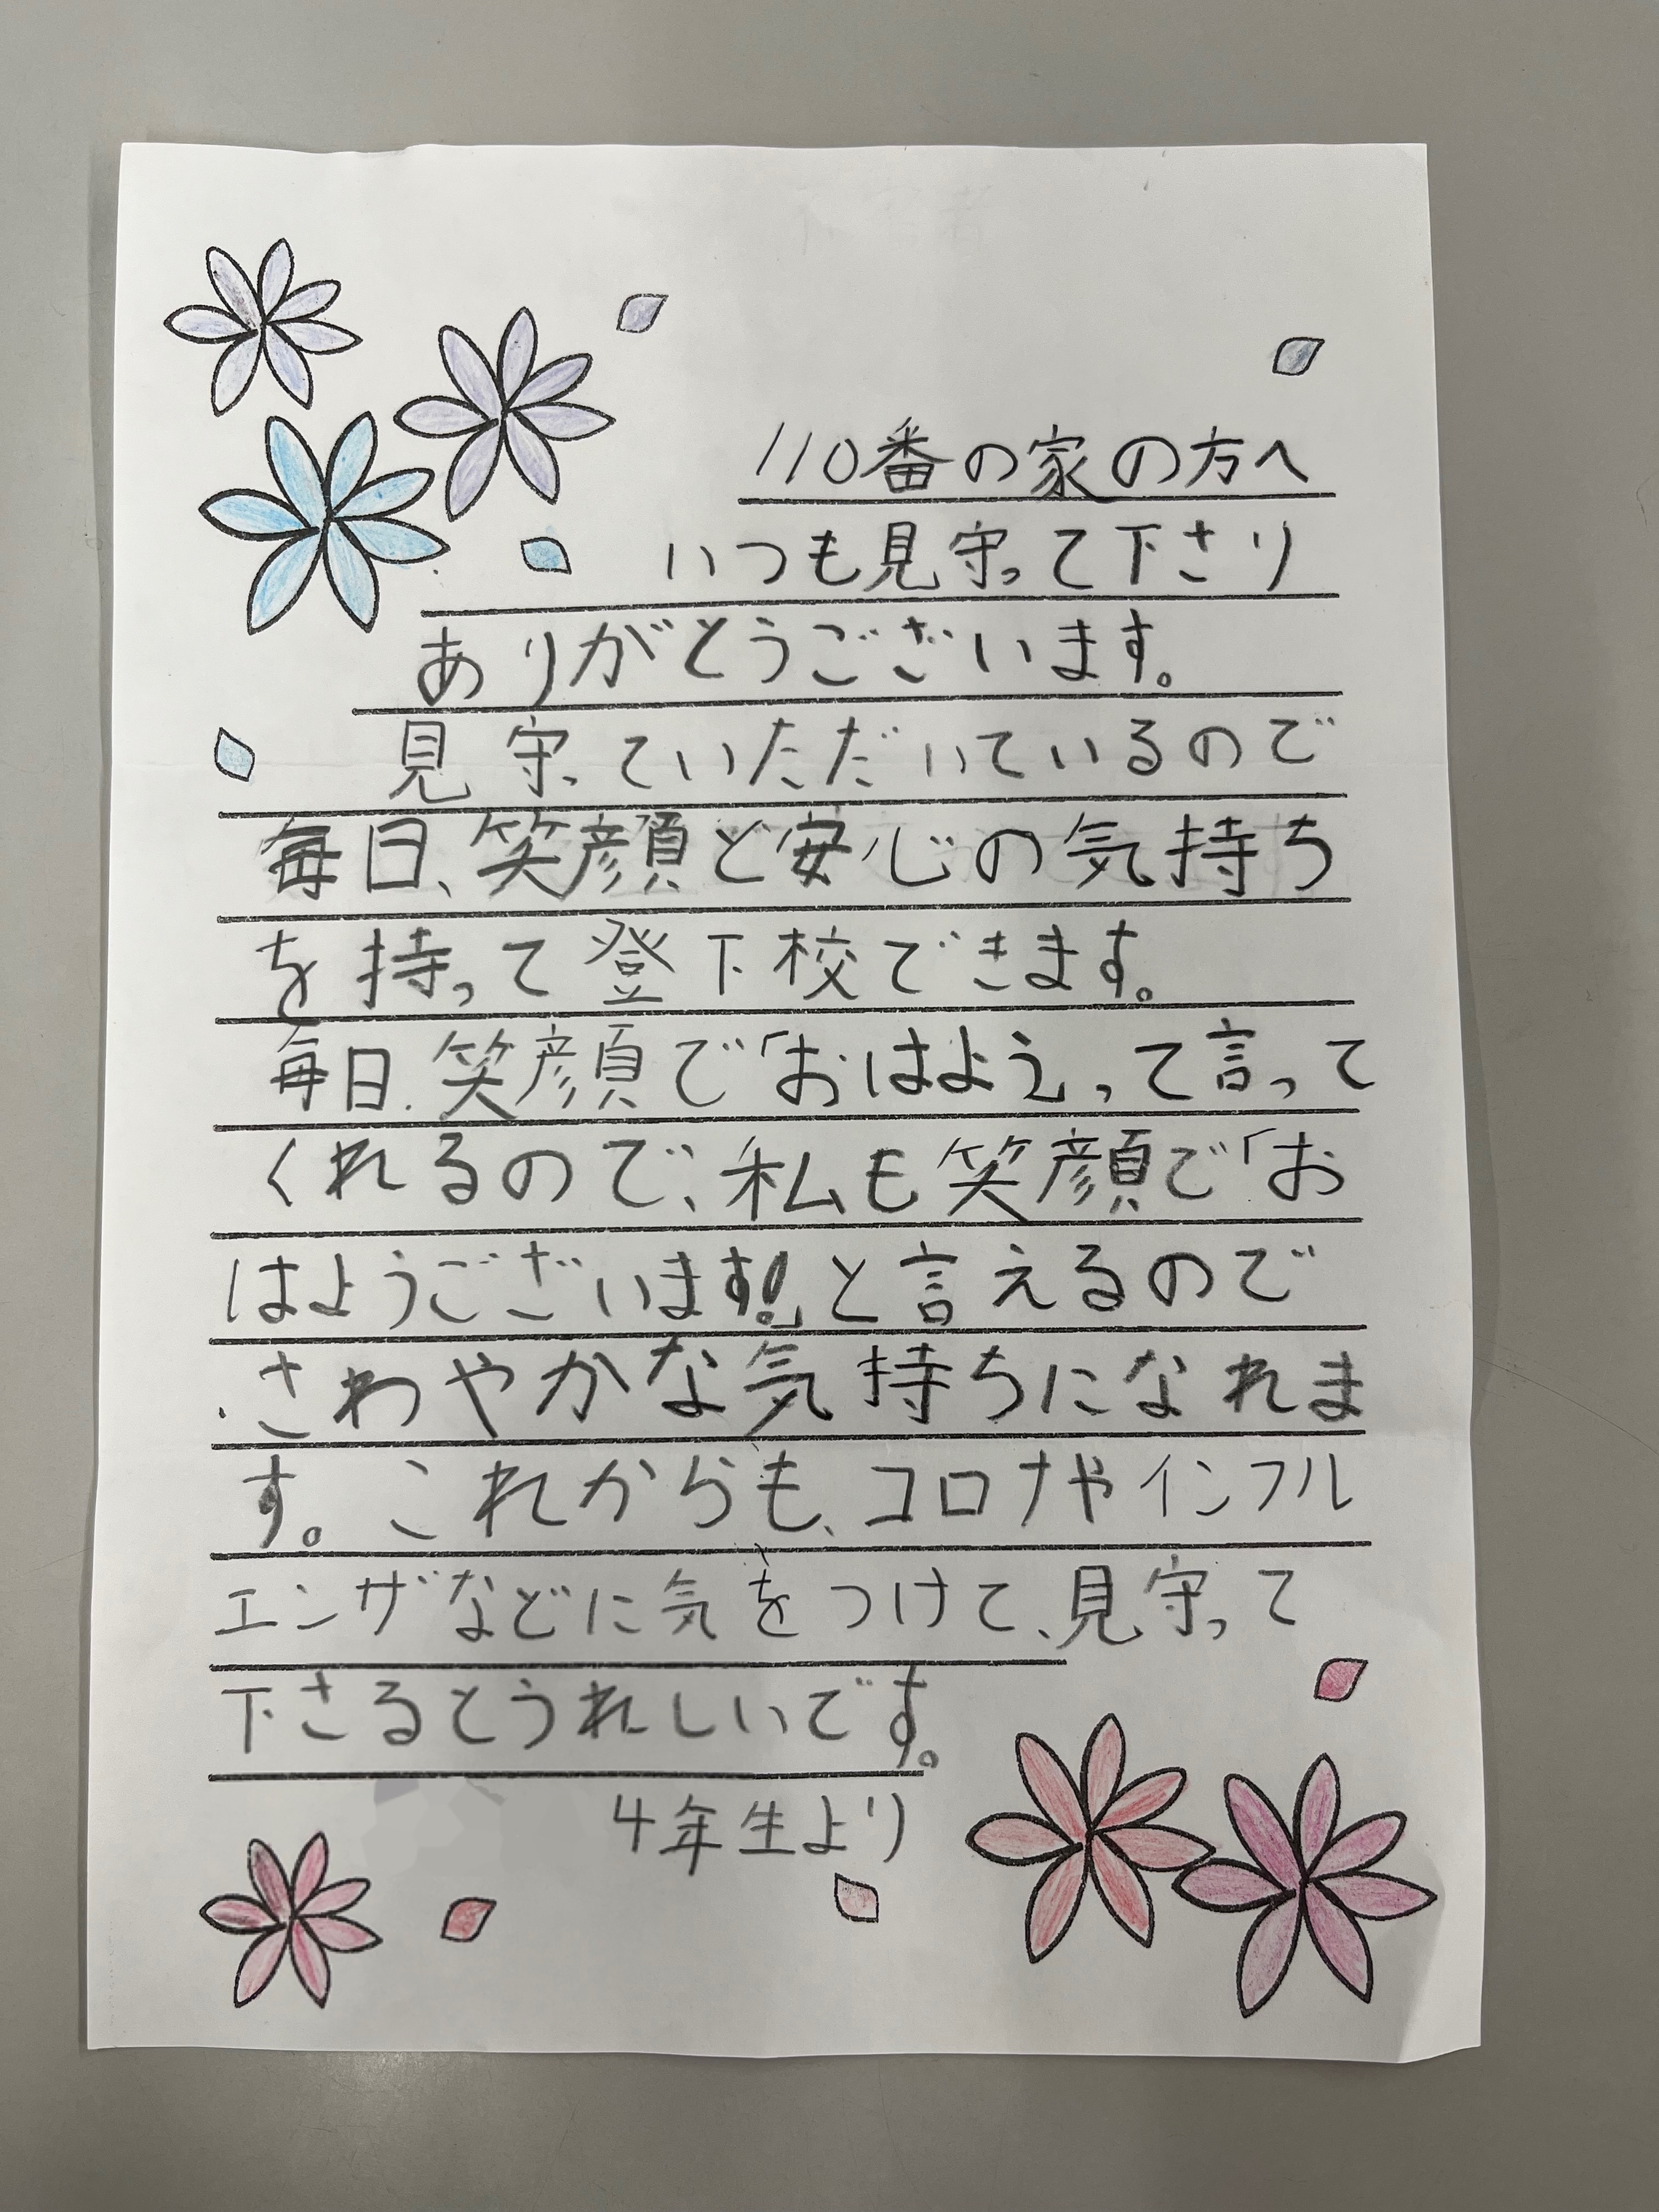 110番の家の方へ
いつも見守って下さり
ありがとうございます。
見守っていただいているので
毎日、笑顔と安心の気持ち
を持って登下校できます。
毎日、笑顔で「おはよう」って言って
くれるので、私も笑顔で「お
はようございます!」と言えるので
さわやかな気持ちになれま
す。これからも、コロナやインフル
エンザなどに気をつけて、見守って
下さるとうれしいです。
4年生より